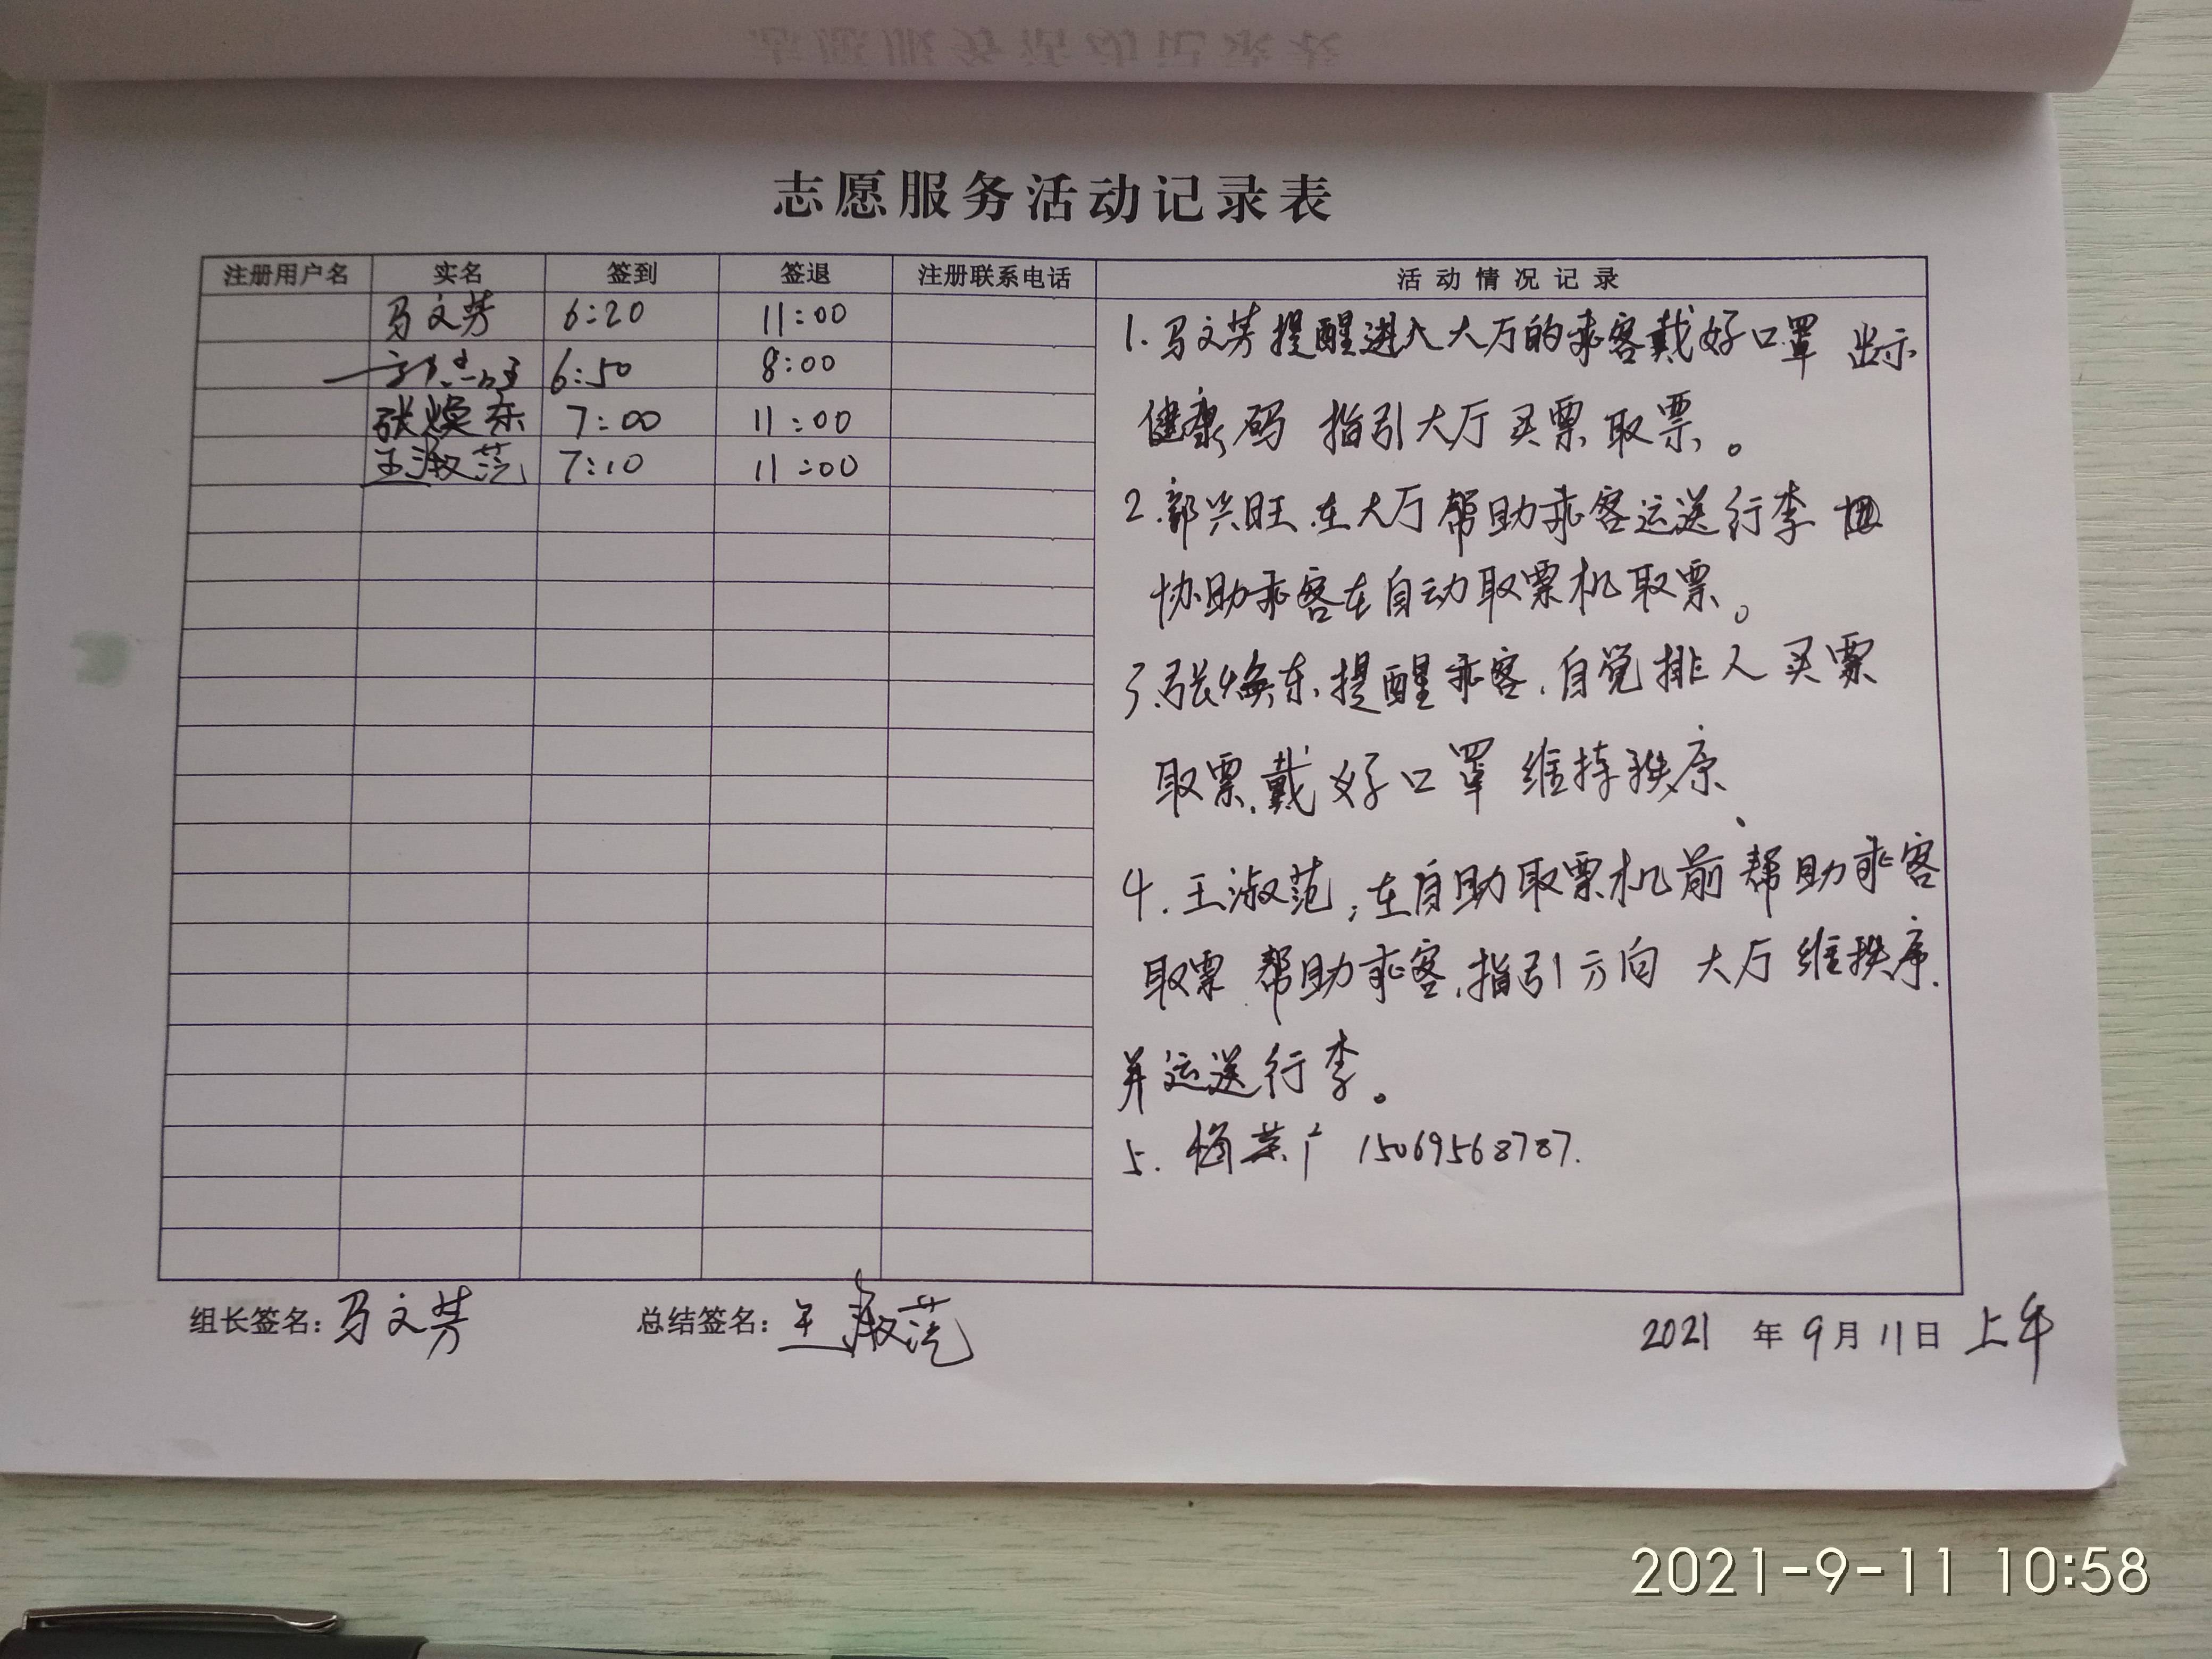 志愿服务活动记录表
注册用户名 实名 签到 签退 注册联系电话 活动情况记录
马文芳 6:20 11:00
6:50 8:00
张焕东 7:00 11:00
王淑范 7:10 11:00
1.马文芳提醒进入大厅的乘客戴好口罩 出示
健康码 指引大厅买票取票。
2.郭兴旺.在大厅帮助乘客运送行李
协助乘客在自动取票机取票。
3.张焕东.提醒乘客.自觉排人买票
取票.戴好口罩 维持秩序、
4.王淑范;在自助取票机前帮助乘客
取票 帮助乘客.指引方向 大厅维秩序.
并运送行李。
5. 15069568787.
组长签名:马文芳 总结签名:王淑范 2021年9月11日上午
2021-9-11 10:58